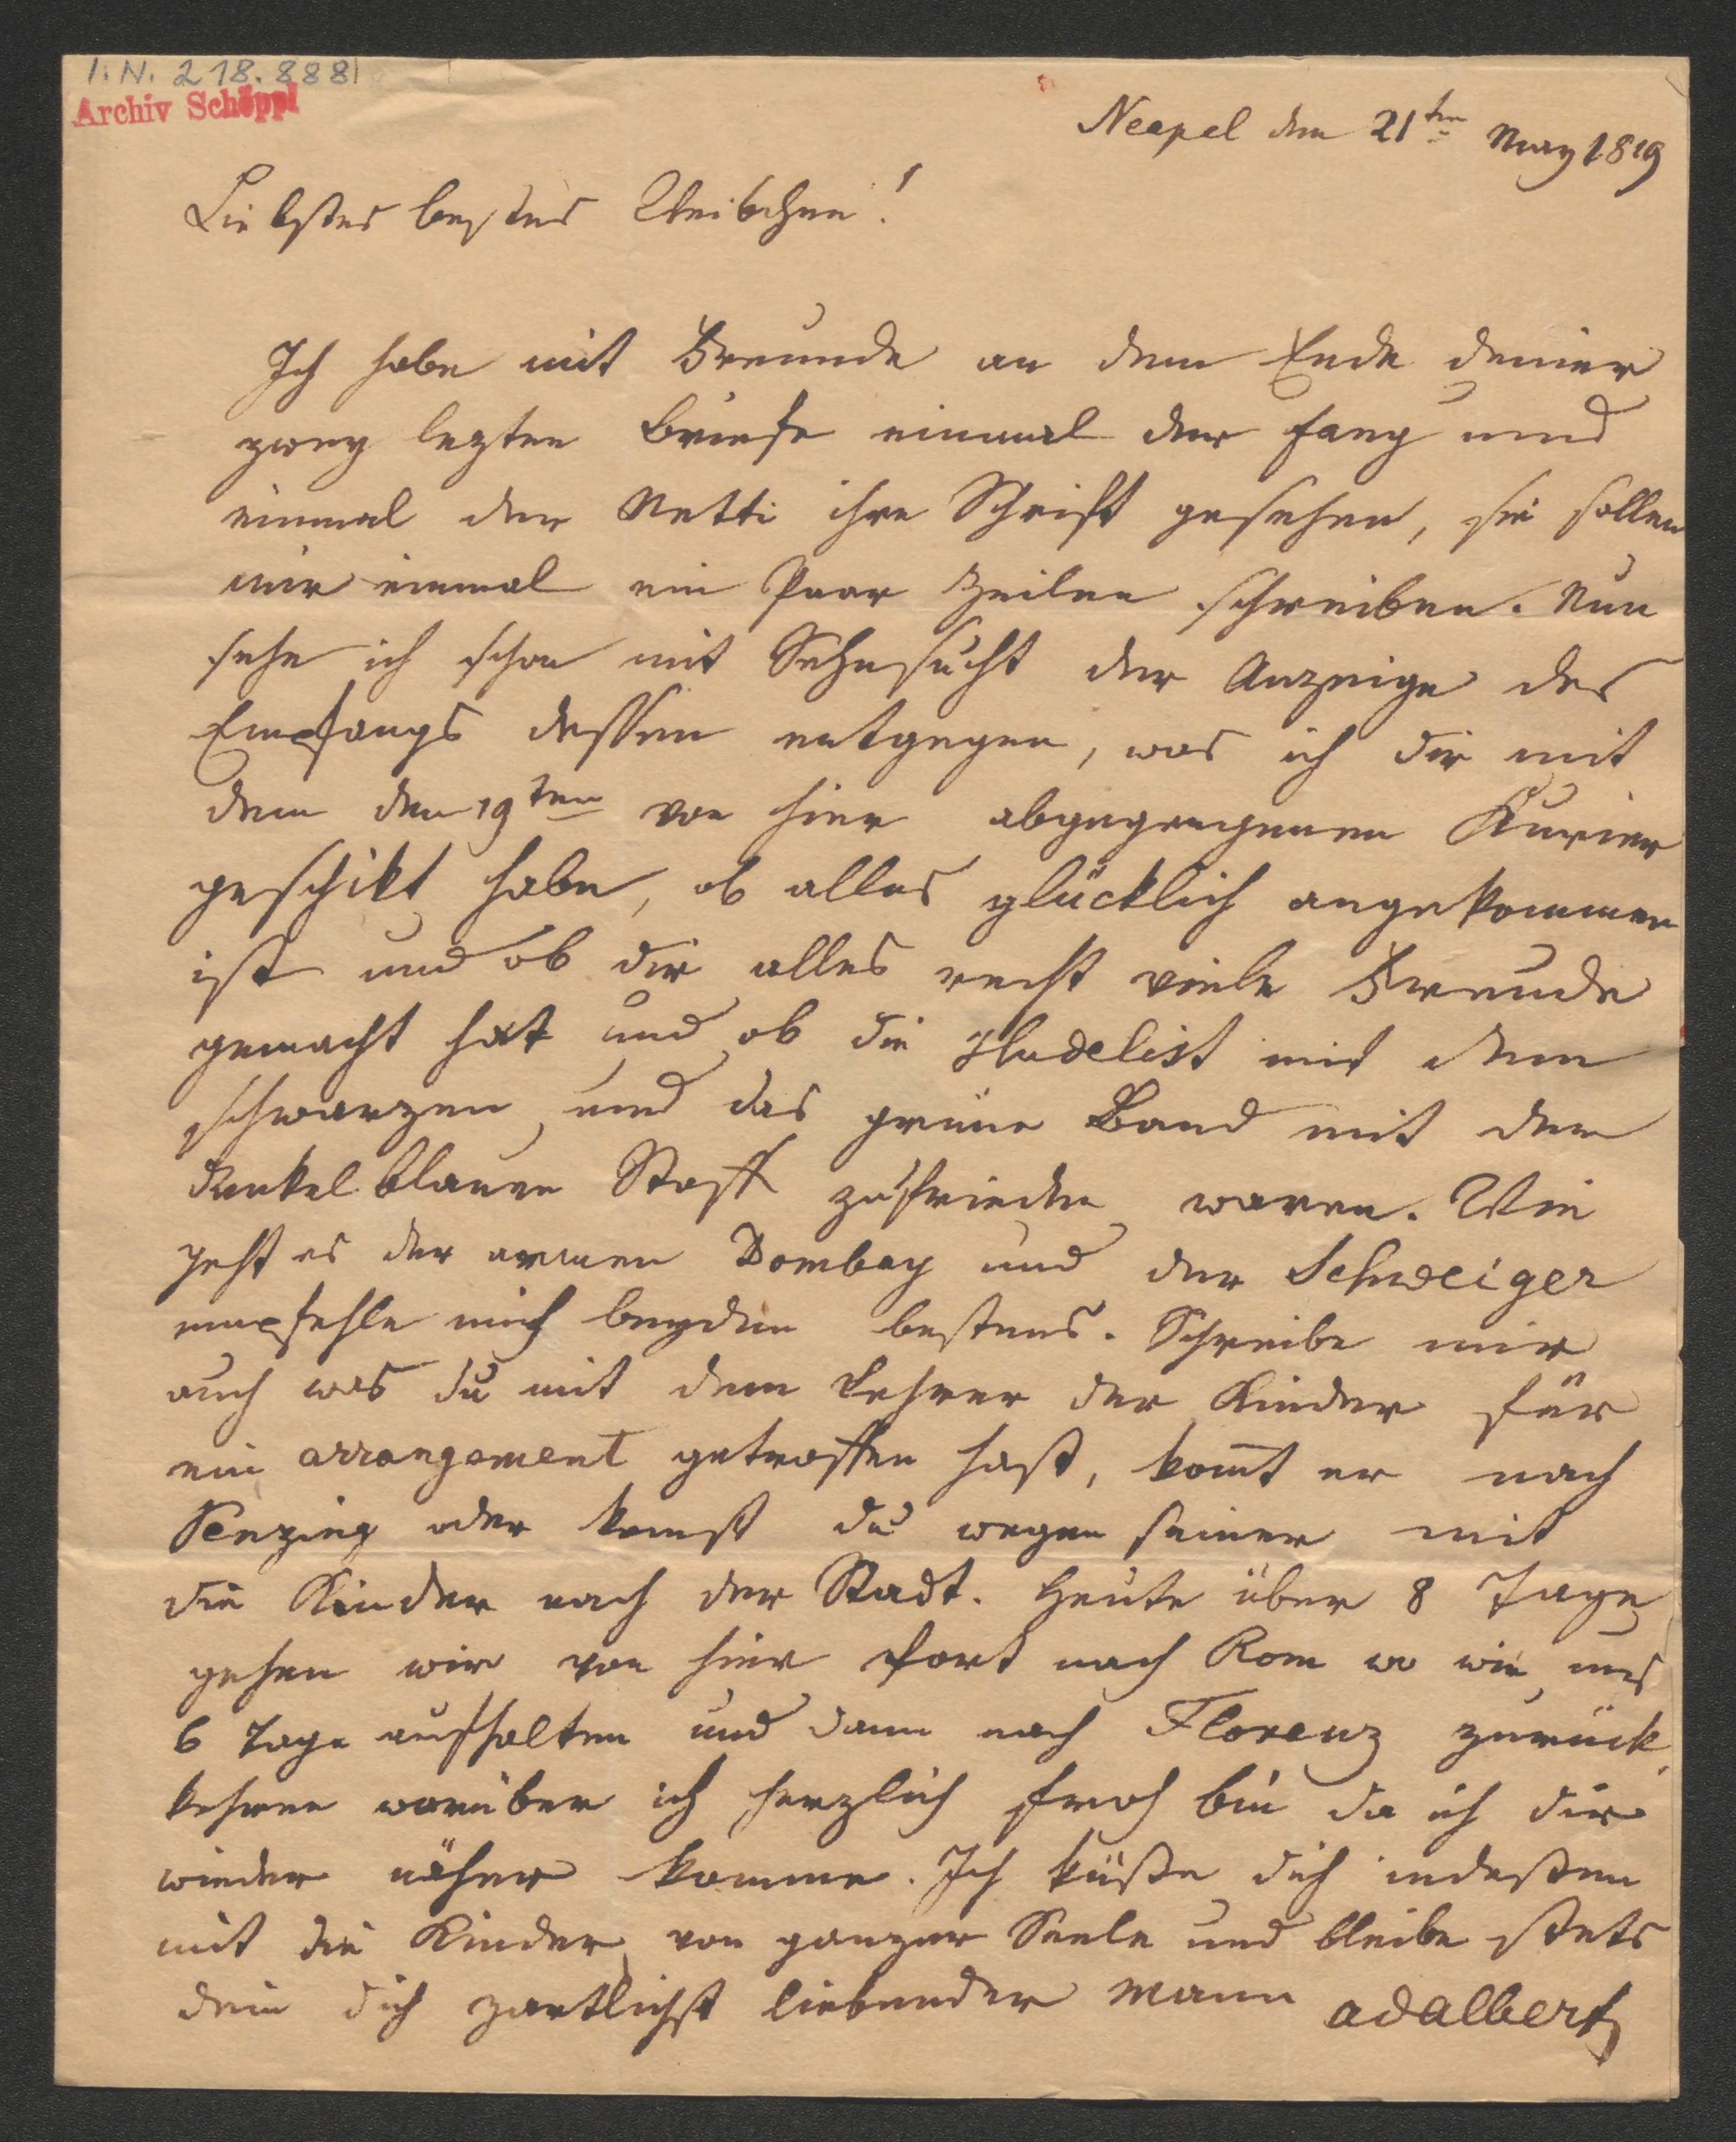 I. N. 218.888
Archiv Schöppl
Neapel den 21ten May 1819
Liebstes bestes Weibchen!
Ich habe mit Freunde an dem Ende deiner
zwey lezten Briefe einmal der Fany und
einmal der Netti ihre Schrift gesehen, sie sollen
mir einmal ein Paar Zeilen schreiben. Nun
sehe ich schon mit Sehnsucht der Anzeige des
Empfangs dessen entgegen, was ich dir mit
dem den 19ten von hier abgegangenen Kurier
geschikt habe, ob alles glücklich angekommen
ist und ob dir alles recht viele Freude
gemacht hat und ob die Hudelist mit dem
schwarzen und das grüne Band mit dem
dunkelblauen Stoff zufrieden waren. Wie
geht es der armen Dombay und der Schweiger
empfehle mich beyden bestens. Schreibe mir
auch was du mit dem Lehrer der Kinder für
ein arrangement getroffen hast, komt er nach
Penzing oder komst du wegen seiner mit
die Kinder nach der Stadt. Heute über 8 Tage
gehen wir von hier fort nach Rom wo wir uns
6 Tage aufhalten und dann nach Florenz zurück
kehren worüber ich herzlich froh bin da ich dir
wieder näher komme. Ich küße dich indeßen
mit die Kinder von ganzer Seele und bleibe stets
dein dich zartlichst liebender Mann Adalbert